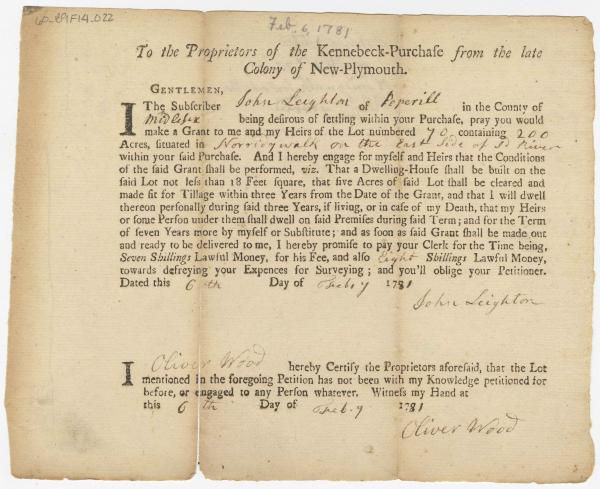 Feb. 6, 1781
To the Proprietors of the Kennebeck-Purchase from the late
Colony of New-Plymouth.
GENTLEMEN,
I The Subscriber John Leighton of Peperill in the County of
Midlesex being desirous of settling within your Purchase, pray you would
make a Grant to me and my Heirs of the Lot numbered 70 containing 200
Acres, situated in Norridgwalk on the East Side of sd River
within your said Purchase. And I hereby engage for myself and Heirs that the Conditions
of the said Grant shall be performed, viz. That a Dwelling-House shall be built on the
said Lot not less than 18 Feet square, that five Acres of said Lot shall be cleared and
made fit for Tillage within three Years from the Date of the Grant, and that I will dwell
thereon personally during said three Years, if living, or in case of my Death, that my Heirs
or some Person under them shall dwell on said Premises during said Term; and for the Term
of seven Years more by myself or Substitute; and as soon as said Grant shall be made out
and ready to be delivered to me, I hereby promise to pay your Clerk for the Time being,
Seven Shillings Lawful Money, for his Fee, and also Eight Shillings Lawful Money,
towards defreying your Expences for Surveying; and you'll oblige your Petitioner.
Dated this 6th Day of Feb.y 1781
John Leighton
I Oliver Wood hereby Certify the Proprietors aforesaid, that the Lot
mentioned in the foregoing Petition has not been with my Knowledge petitioned for
before, or engaged to any Person whatever. Witness my Hand at
this 6th Day of Feb.y 1781
Oliver Wood